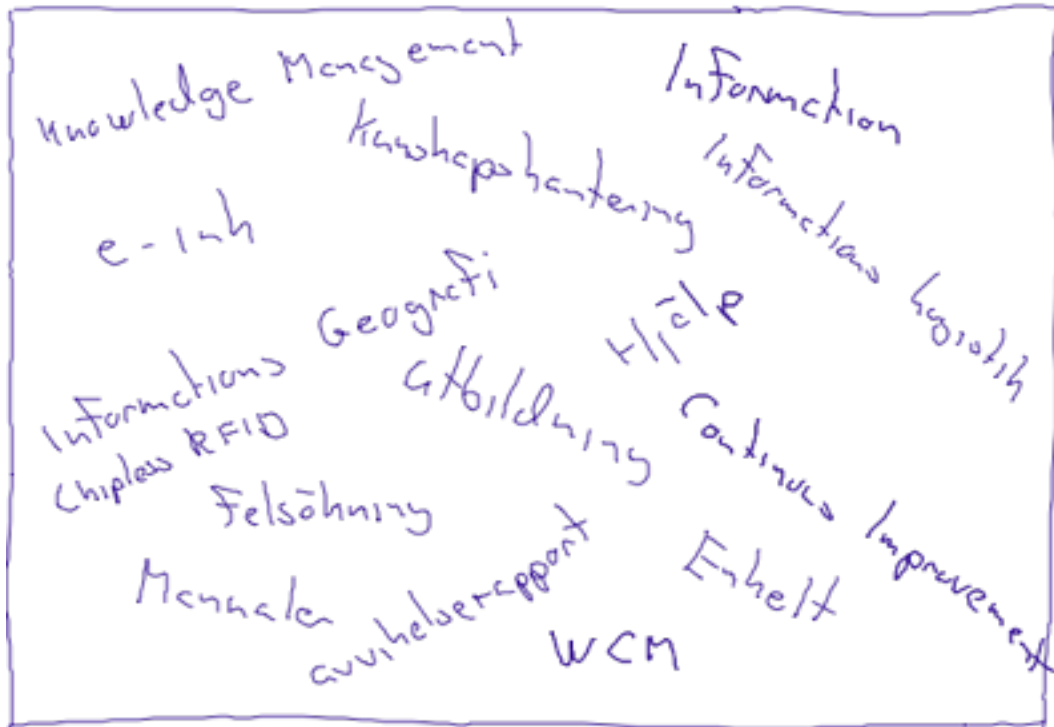 Knowledge Management
Information
Kunskapshantering
Informations logistik
e-ink
Geografi
Informations
Utbildning
Continus Improvement
Chipless RFID
Felsökning
Manualer
avvikelserapport
Enkelt
WCM